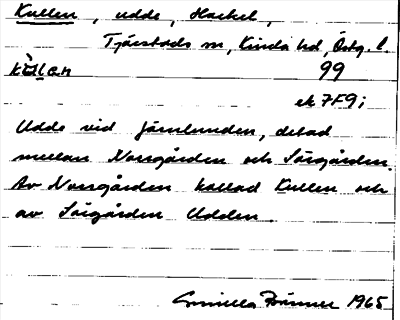 Kullen, udde, Hackel,
Tjärstads sn, Kinda hd, Östg. l.
kùlan 99
ek 7F9;
Udde vid Järnlunden, delad
mellan Norrgården och Sörgården.
Av Norrgården kallad Kullen och
av Sörgården Udden.
Gunilla Bränner 1965